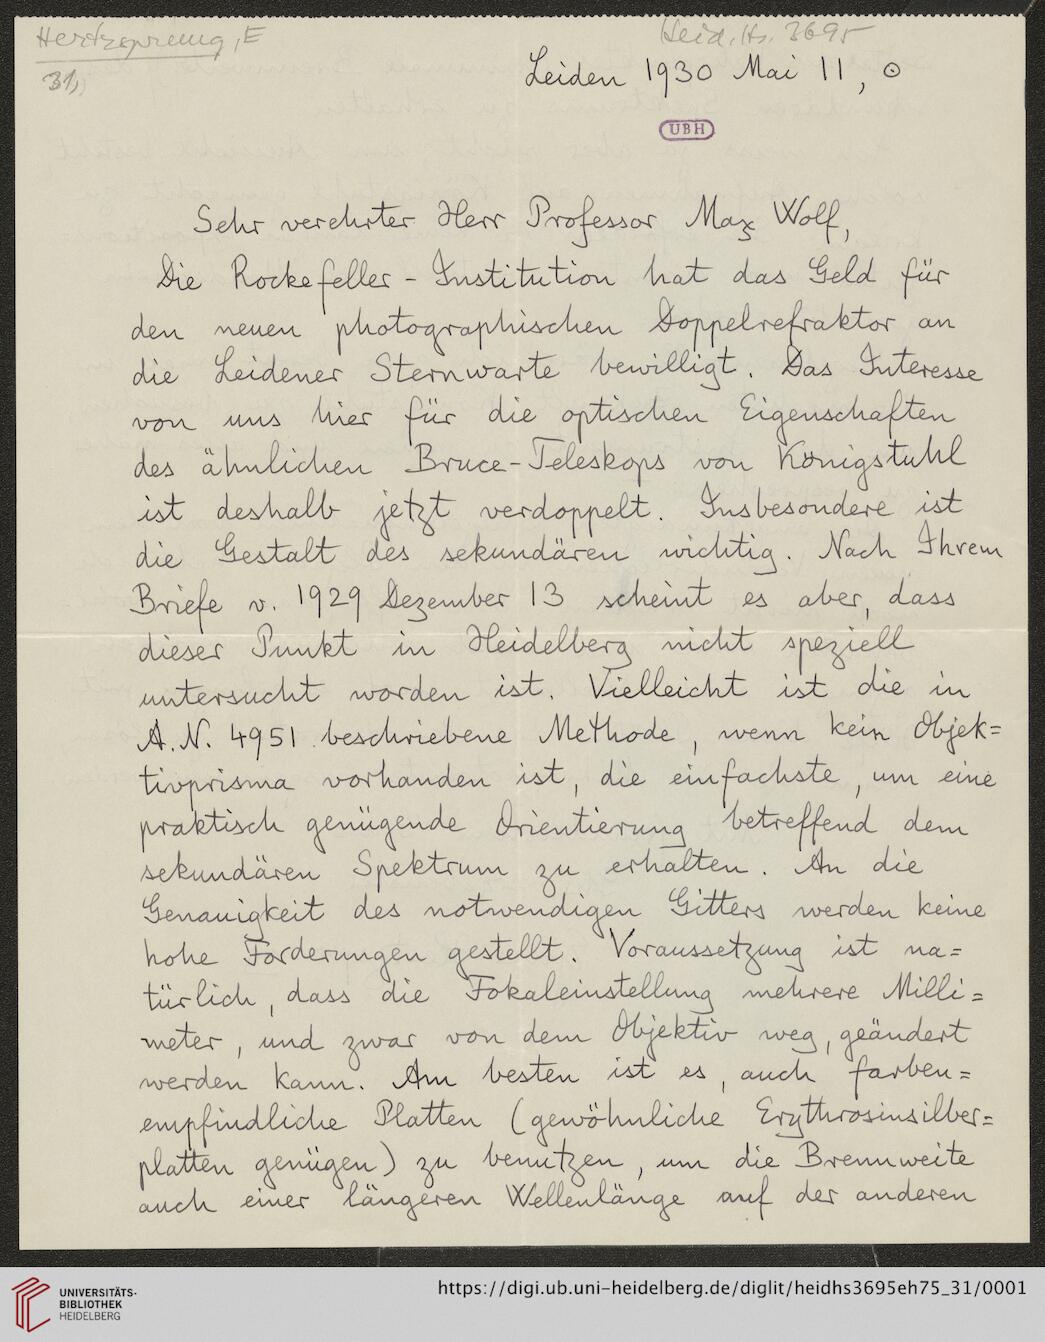 Hertzsprung, E
Heid. Hs. 3695
31,
Leiden 1930 Mai 11, ⊙
UBH
Sehr verehrter Herr Professor Max Wolf,
Die Rockefeller-Institution hat das Geld für
den neuen photographischen Doppelrefraktor an
die Leidener Sternwarte bewilligt. Das Interesse
von uns hier für die optischen Eigenschaften
des ähnlichen Bruce-Teleskops von Königstuhl
ist deshalb jetzt verdoppelt. Insbesondere ist
die Gestalt des sekundären wichtig. Nach Ihrem
Briefe v. 1929 Dezember 13 scheint es aber, dass
dieser Punkt in Heidelberg nicht speziell
untersucht worden ist. Vielleicht ist die in
A.N. 4951 beschriebene Methode, wenn kein Objek=
tivprisma vorhanden ist, die einfachste, um eine
praktisch genügende Orientierung betreffend dem
sekundären Spektrum zu erhalten. An die
Genauigkeit des notwendigen Gitters werden keine
hohe Forderungen gestellt. Voraussetzung ist na=
türlich, dass die Fokaleinstellung mehrere Milli=
meter, und zwar von dem Objektiv weg, geändert
werden kann. Am besten ist es, auch farben=
empfindliche Platten (gewöhnliche Erythrosinsilber=
platten genügen) zu benutzen, um die Brennweite
auch einer längeren Wellenlänge auf der anderen
UNIVERSITÄTS-
BIBLIOTHEK
HEIDELBERG
https://digi.ub.uni-heidelberg.de/diglit/heidhs3695eh75_31/0001